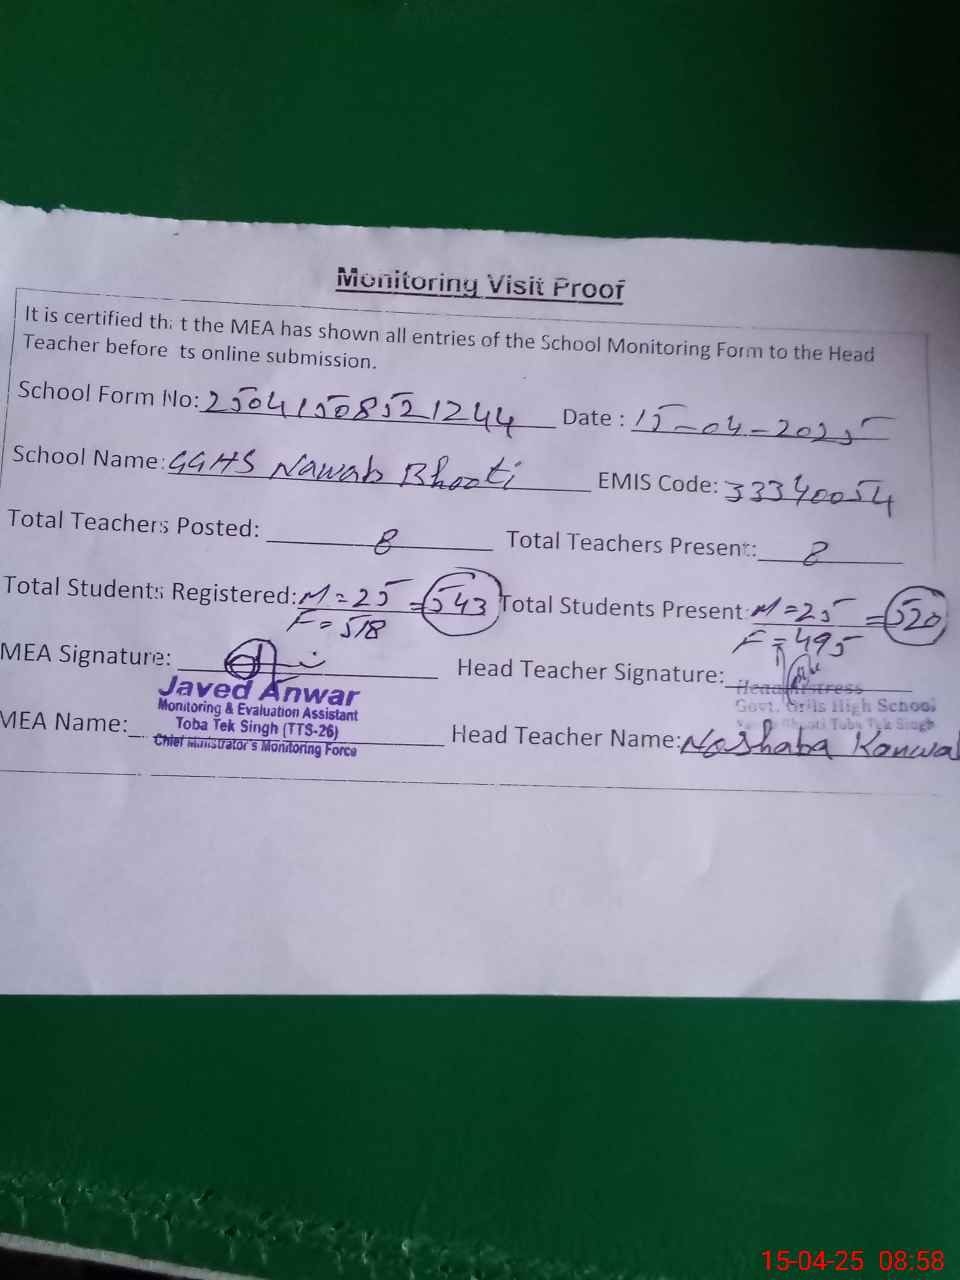 Monitoring Visit Proof
It is certified that the MEA has shown all entries of the School Monitoring Form to the Head
Teacher before its online submission.
School Form No: 25041508521244 Date : 15-04-2025
School Name: GGHS Nawab Bhooti EMIS Code: 33340054
Total Teachers Posted: 8 Total Teachers Present: 8
Total Students Registered: M = 25 = 543 Total Students Present: M = 25 = 520
F = 518 F = 495
MEA Signature: Head Teacher Signature:
Javed Anwar Headmistress
Monitoring & Evaluation Assistant Govt. Grils High School
Toba Tek Singh (TTS-26) Bhooti Toba Tek Singh
Chief Ministrator's Monitoring Force
MEA Name: Head Teacher Name: Noshaba Kanwal
15-04-25 08:58